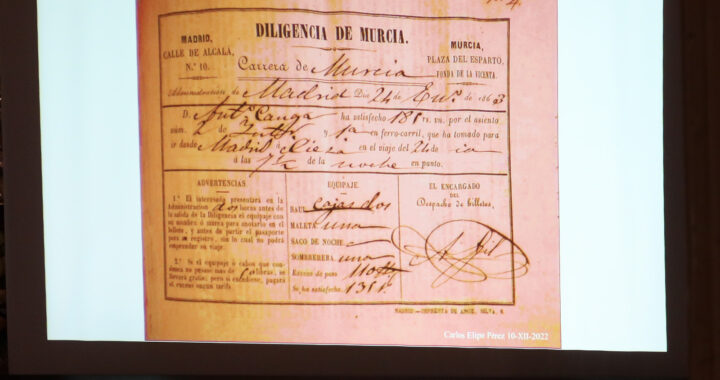 4.
MADRID,
CALLE DE ALCALÁ,
N.º 10.
DILIGENCIA DE MURCIA.
Carrera de Murcia
MURCIA,
PLAZA DEL ESPARTO,
FONDA DE LA VICENTA.
Administracion de Madrid Dia 24 de En.º de 1863
D. Ant.º Canga ha satisfecho 185 rs. vn. por el asiento
núm. 2 de y 1a en ferro-carril, que ha tomado para
ir desde Madrid á Cieza en el viaje del 24 de
á las 7½ de la noche en punto.
ADVERTENCIAS.
1.ª El interesado presentará en la
Administracion dos horas antes de
la salida de la Diligencia el equipaje con
su nombre ó marca para anotarlo en el
billete, y antes de partir el pasaporte
para su registro, sin lo cual no podrá
emprender su viaje.
2.ª Si el equipaje ó cabos que con-
duzca no pasase mas de libras, se
llevará gratis; pero si escediese, pagará
el exceso segun tarifa.
EQUIPAJE.
BAUL cajas dos
MALETA una
SACO DE NOCHE
SOMBRERERA una
Esceso de peso 110
Se ha satisfecho 135
EL ENCARGADO
DEL
Despacho de billetes,
MADRID.—IMPRENTA DE
Carlos Elipe Pérez 10-XII-2022